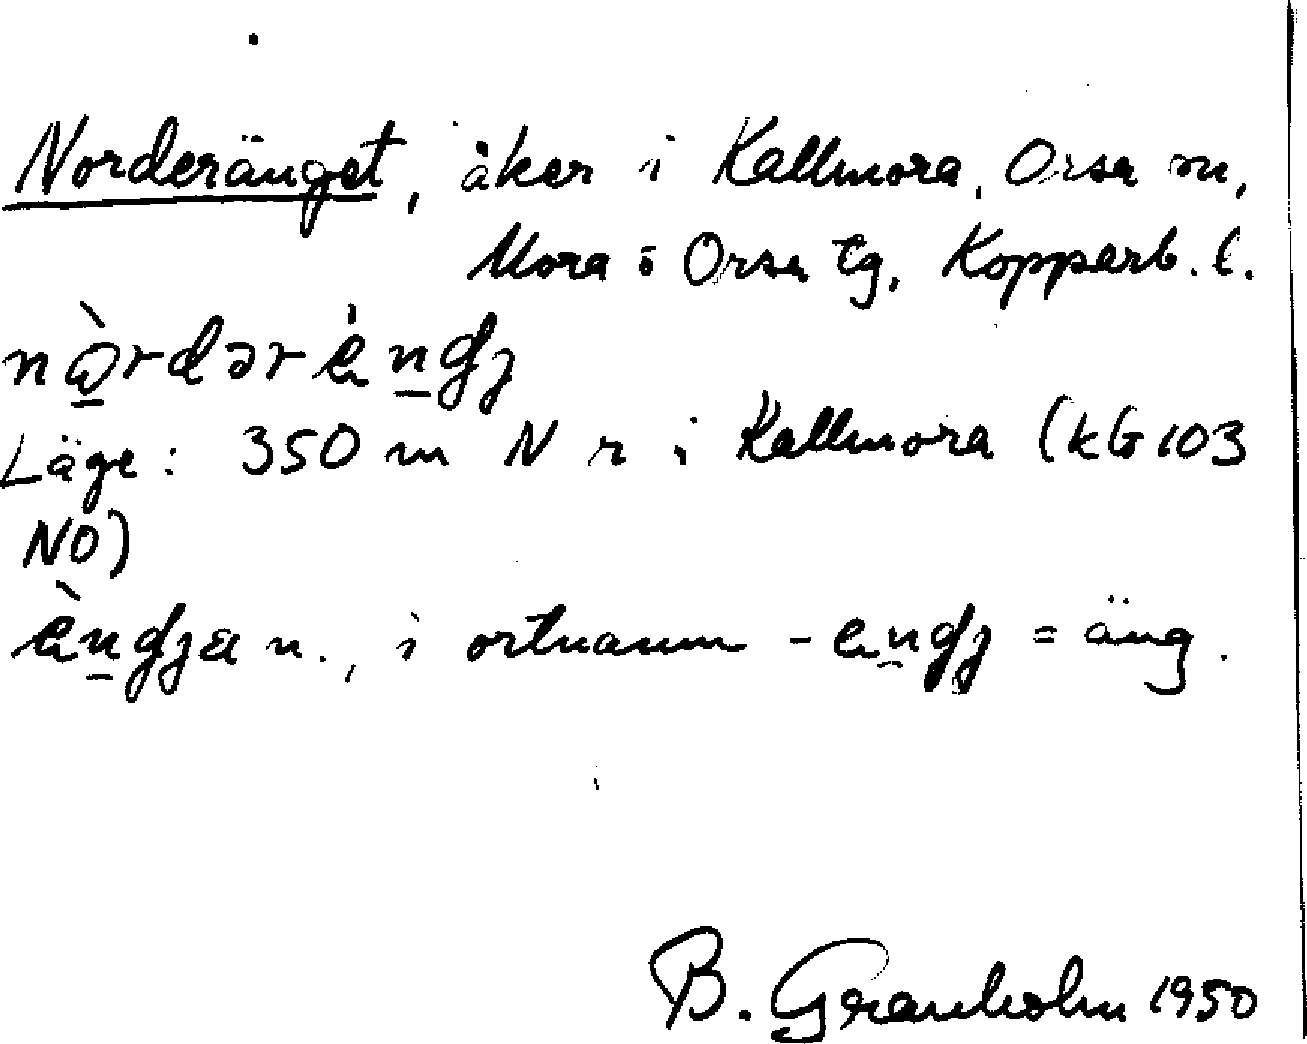 Norderänget, åker i Kallmora, Orsa sn,
Mora o Orsa tg, Kopparb. l.
Läge: 350 m N r i Kallmora (kG 103
NO)
n., i ortnamn = äng.
B. Granholm 1950